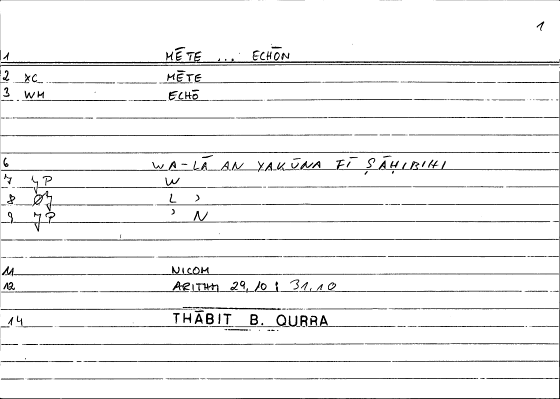 1
1 MĒTE ... ECHŌN
2 XC MĒTE
3 WH ECHŌ
6 WA-LĀ AN YAKŪNA FĪ ṢĀḤIBIHI
7 YP W
8 L ʾ
9 YP ʾ N
11 NICOM
12 ARITHM 29,10 : 31,10
14 THĀBIT B. QURRA